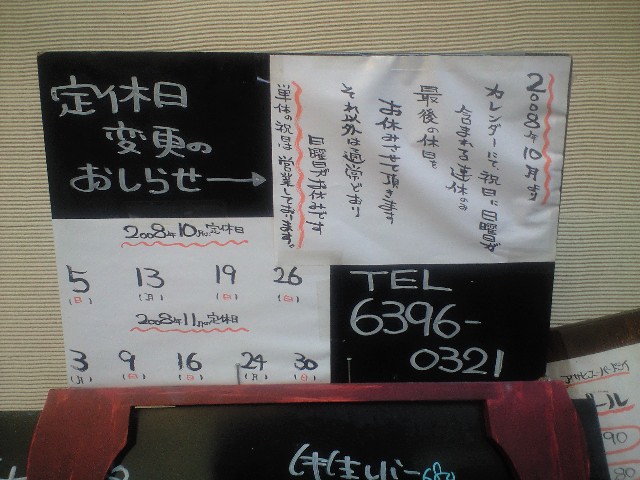 定休日
変更の
おしらせ→
2008年10月より
カレンダーにて、祝日に日曜日が
含まれる連休のみ
最後の休日を
お休みさせて頂きます
それ以外は通常どおり
日曜日がお休みです
単休の祝日は営業しております。
2008年10月の定休日
5 13 19 26
(日) (月) (日) (日)
2008年11月の定休日
3 9 16 24 30
(月) (日) (日) (月) (日)
TEL
6396-
0321
ール
90
80
680